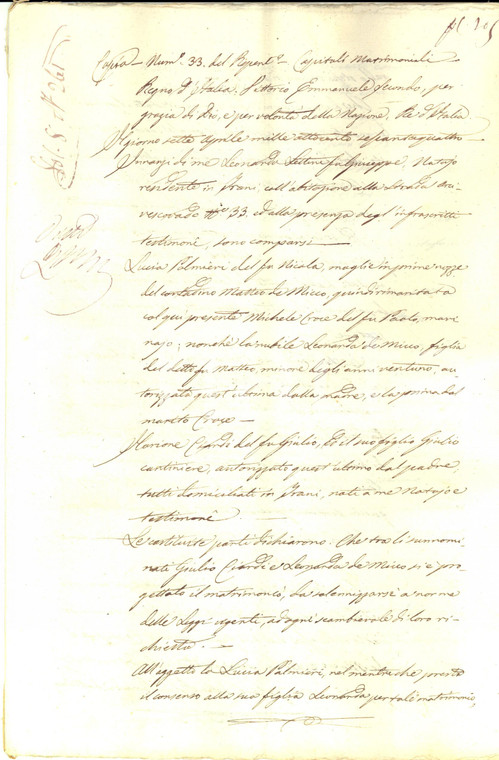 Copia - Num.° 33. del Repert.° - Capitoli Matrimoniali
Regno d'Italia. Vittorio Emmanuele secondo, per
grazia di Dio, e per volontà della Nazione, Re d'Italia
Il giorno sette Aprile mille ottocento sessantaquattro
Innanzi di me Leonardo fu Giuseppe, Notajo
residente in Trani, coll'abitazione alla strada Arci
vescovado n.° 33, ed alla presenza degl'infrascritti
testimonî, sono comparsi
Lucia Palmieri del fu Nicola, moglie in prime nozze
del contadino Matteo de Micco, quindi rimaritata
col qui presente Michele Croce del fu Paolo, mari
najo; nonchè la nubile Leonarda de Micco, figlia
del detto fu Matteo, minore degli anni ventuno, au
torizzata quest'ultima dalla madre, e la prima dal
marito Croce -
Ilarione Ciardi del fu Giulio, ed il suo figlio Giulio
cantiniere, autorizzato quest'ultimo dal padre,
tutti domiciliati in Trani, noti a me Notajo e
testimonî. -
Le costituite parti dichiarono: Che tra li sunnomi
nati Giulio Ciardi e Leonarda de Micco si è pro
gettato il matrimonio, da solennizzarsi a norme
delle Leggi vigenti, ad ogni scambievole di loro ri
chiesta. -
All'oggetto la Lucia Palmieri, nel mentre che presta
il consenso alla sua figlia Leonarda per tale matrimonio,